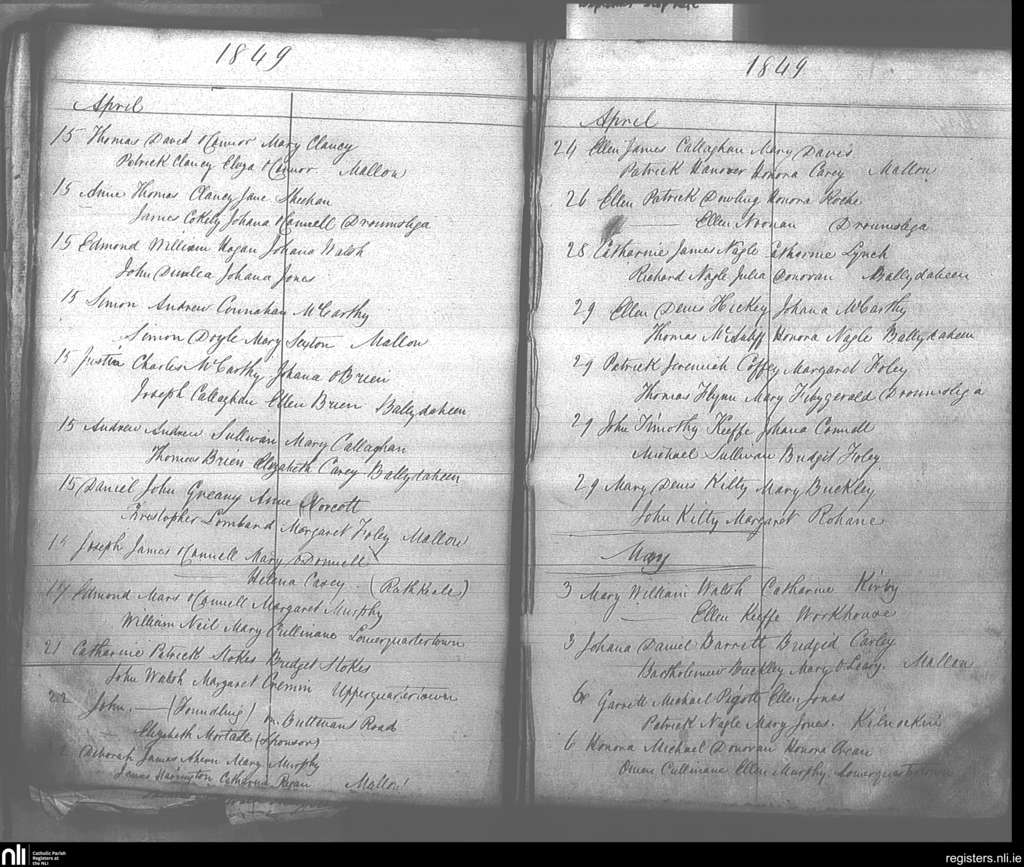 1849
April
15 Thomas David O'Connor Mary Clancy
Patrick Clancy Eliza O'Connor Mallow
15 Anne Thomas Clancy Jane Sheehan
James Cokely Johana O'Connell Dromsliga
15 Edmond William Hogan Johana Walsh
John Dunlea Johana Jones
15 Simon Andrew Counahan McCarthy
Simon Doyle Mary Sexton Mallow
15 Justin Charles McCarthy Johana O'Brien
Joseph Callaghan Ellen Brien Ballydaheen
15 Andrew Andrew Sullivan Mary Callaghan
Thomas Brien Elizabeth Carey Ballydaheen
15 Daniel John Greany Anne Norcott
Christopher Lombard Margaret Foley Mallow
Joseph James O'Connell Mary O'Donnell
Helena Casey (Rathkeale)
17 Edmond Mars O'Connell Margaret Murphy
William Neil Mary Cullinane Lowerquartertown
21 Catharine Patrick Stokes Bridget Stokes
John Walsh Margaret Cremin Upperquartertown
22 John — (Foundling) on Buttevant Road
Elizabeth Mortell (Sponsor)
Deborah James Ahern Mary Murphy
James Harrington Catharine Regan Mallow
1849
April
24 Ellen James Callaghan Mary Davis
Patrick Hanover Honora Carey Mallow
26 Ellen Patrick Dowling Honora Roche
Ellen Noonan Dromsliga
28 Catharine James Nagle Catharine Lynch
Richard Nagle Julia Donovan Ballydaheen
29 Ellen Denis Hickey Johana McCarthy
Thomas McAuliff Honora Nagle Ballydaheen
29 Patrick Jeremiah Coffey Margaret Foley
Thomas Flynn Mary Fitzgerald Dromsliga
29 John Timothy Keeffe Johana Connell
Michael Sullivan Bridgit Foley
29 Mary Denis Kilty Mary Buckley
John Kilty Margaret Rohane
May
3 Mary William Walsh Catharine Kirby
Ellen Keeffe Workhouse
3 Johana Daniel Barrett Bridged Corley
Bartholemew Buckley Mary O'Leary. Mallow
6 Garrett Michael Pigott Ellen Jones
Patrick Nagle Mary Jones.
6 Honora Michael Donovan Honora Regan
Owen Cullinane Ellen Murphy. Lowerquartertown
nli Catholic Parish
Registers at
the NLI
registers.nli.ie